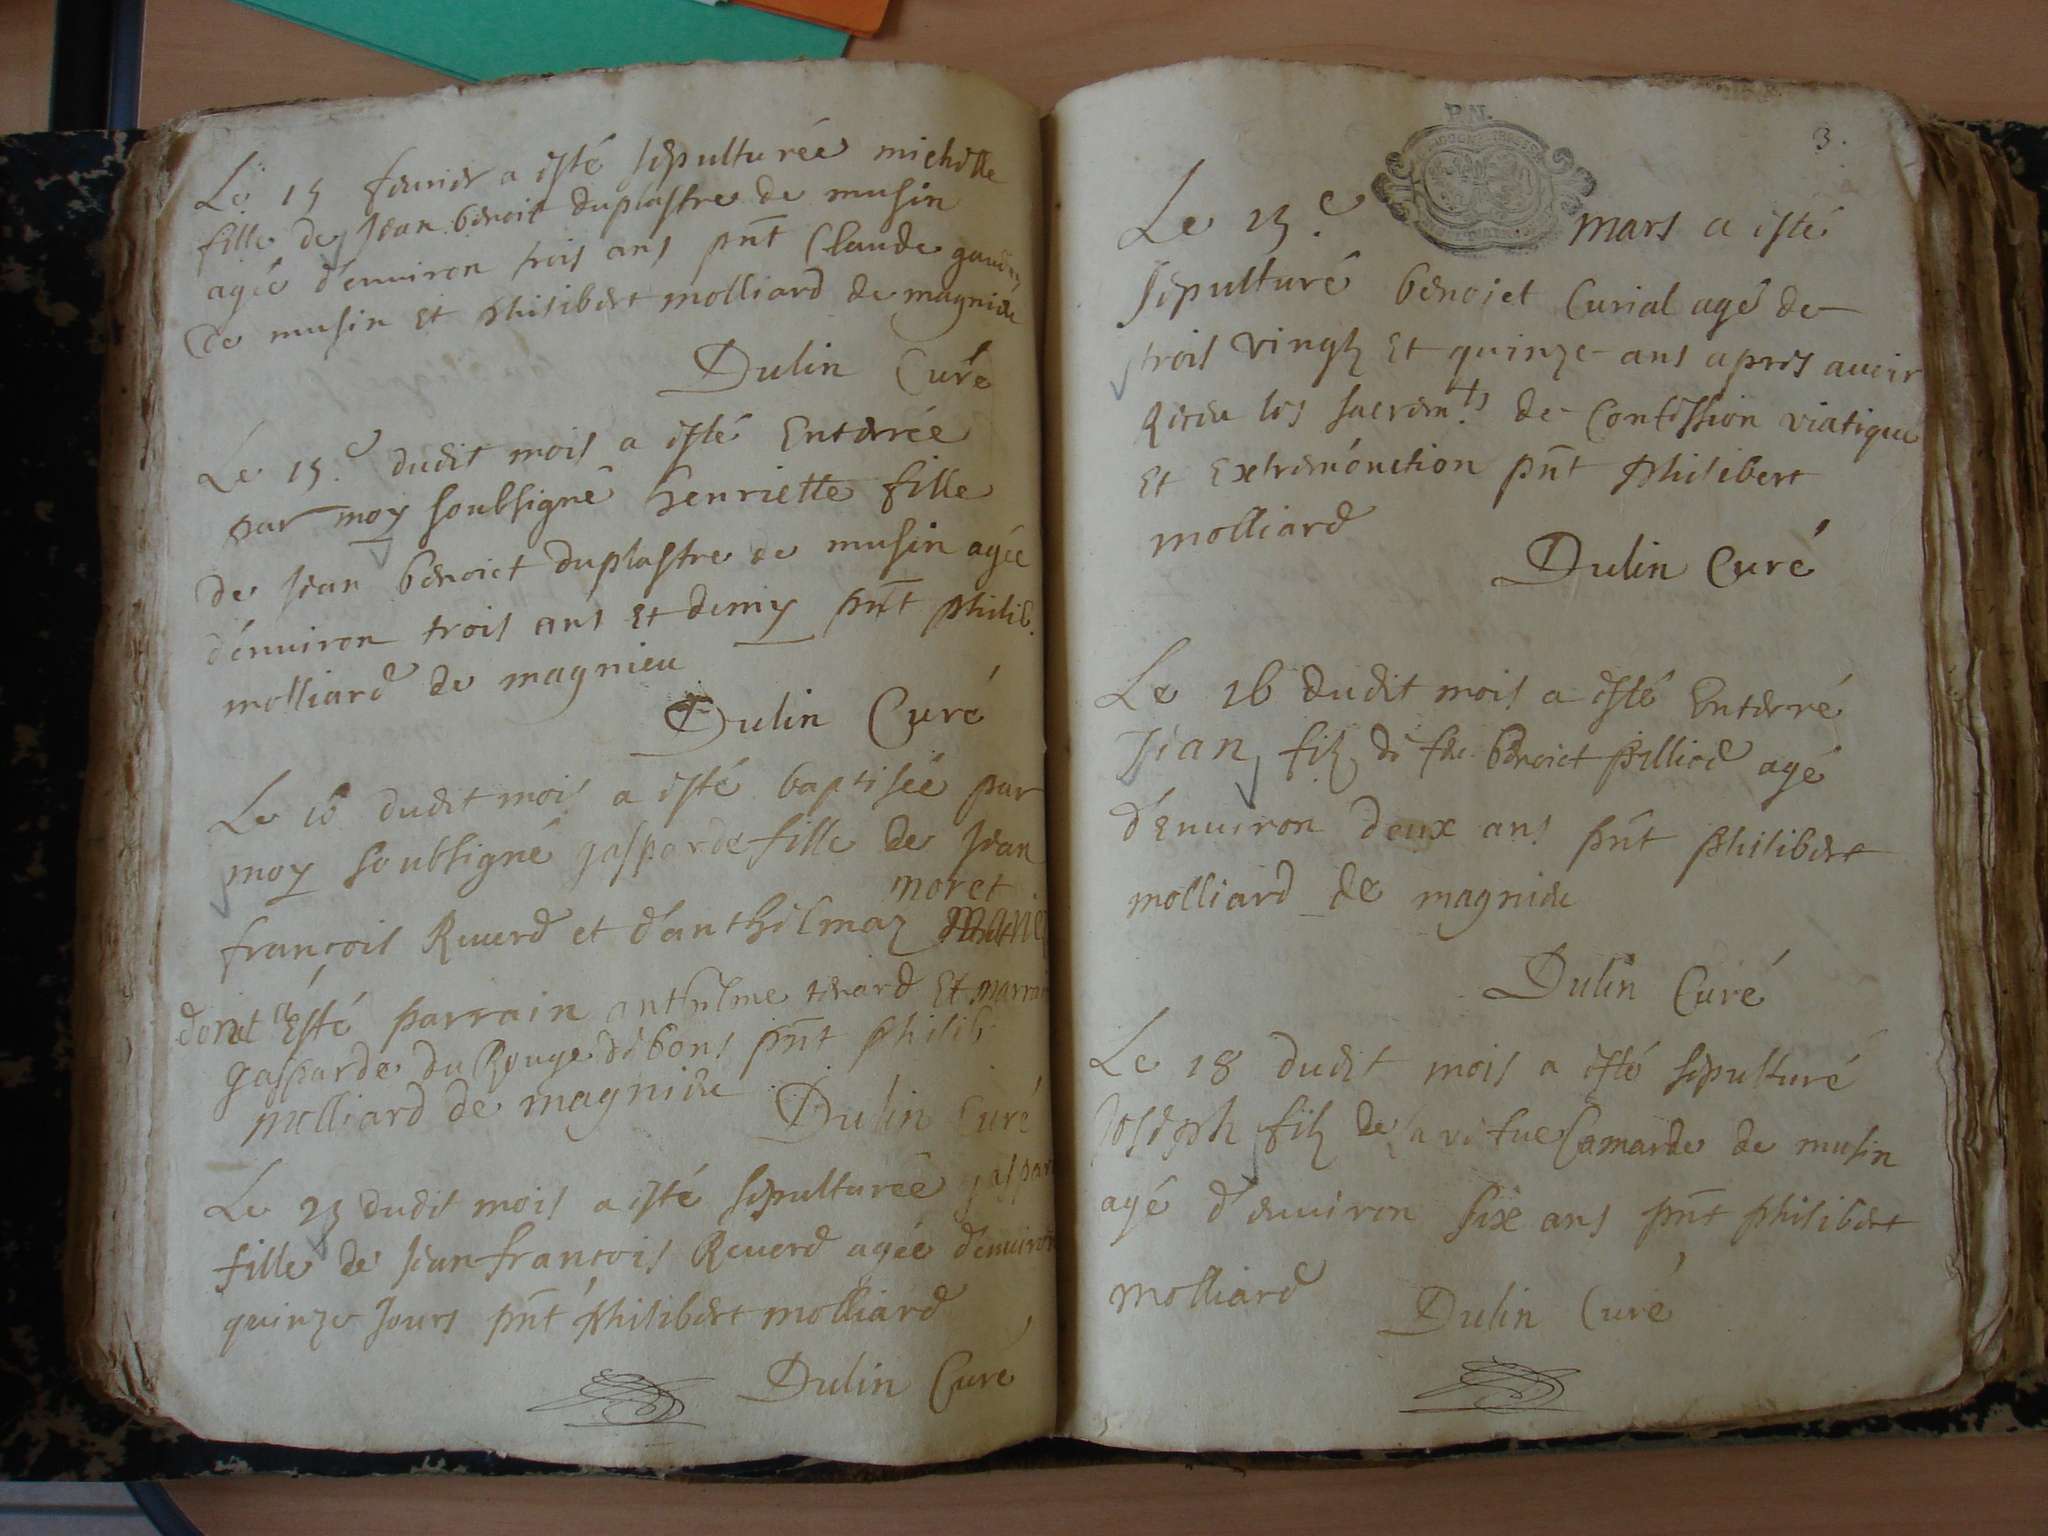 Le 15 feurier a esté sepulturée michelle
fille de Jean benoit duplastre de musin
agée d'enuiron trois ans pnt Claude
de musin et philibert molliard de magnieu
Dulin Curé
Le 15.e dudit mois a esté Enterrée
par moy soubsigné henriette fille
de Jean benoict duplastre de musin agée
d'énuiron trois ans Et demy pnt philib.
molliard de magnieu
Dulin Curé
Le 16 dudit mois a esté baptisée par
moy soubsigné gasparde fille de Jean
moret
françois Reuerd et d'anthelmaz
dont a Esté parrain anthelme Et marraine
gasparde du Rouge de bons pnt philib
molliard de magnieu
Dulin Curé
Le 23 dudit mois a esté sepulturée
fille de Jean françois Reuerd agée d'enuiron
quinze Jours pnt philibert molliard
Dulin Curé
P.N.
3.
Le 15.e mars a esté
sepulturé benoiet Curial agé de
trois vingtz Et quinze ans apres auoir
Receu les sacremts de Confession viatique
Et Extremónction pnt philibert
molliard
Dulin Curé
Le 16 dudit mois a esté Enterré
Jean filz de feu benoict pilliod agé
d'Enuiron deux ans pnt philibert
molliard de magnieu
Dulin Curé
Le 18 dudit mois a esté sepulturé
Joseph filz de la vefue Camarde de musin
agé d'enuiron six ans pnt philibert
molliard
Dulin Curé